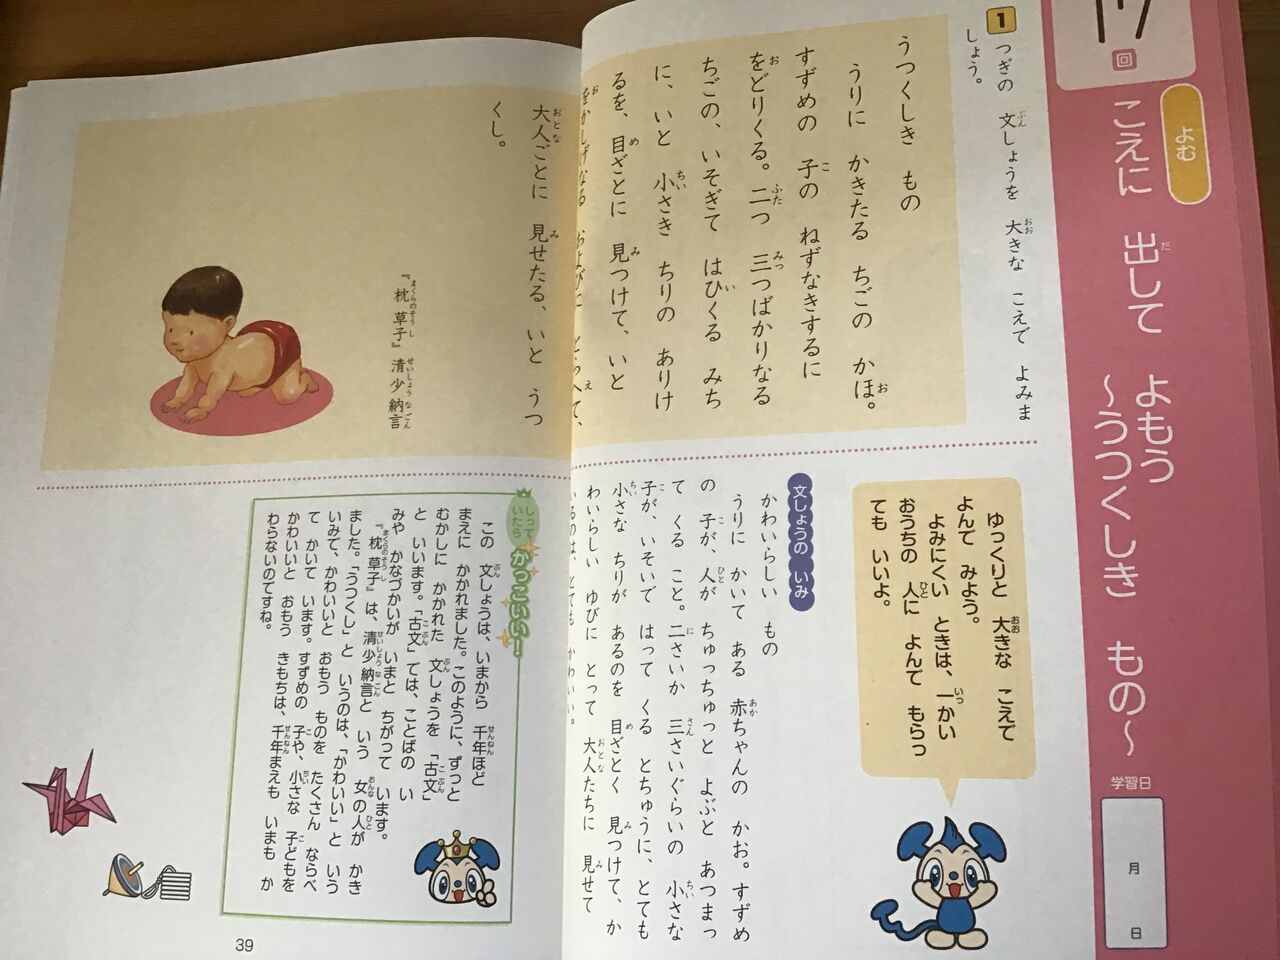 17回
よむ
こえに 出して よもう
～うつくしき もの～
学習日
月
日
1 つぎの 文しょうを 大きな こえで よみま
しょう。
うつくしき もの
うりに かきたる ちごの かほ。
すずめの 子の ねずなきするに
をどりくる。二つ 三つばかりなる
ちごの、いそぎて はひくる みち
に、いと 小さき ちりの ありけ
るを、目ざとに 見つけて、いと
をかしげなる およびに とらへて、
大人ごとに 見せたる、いと うつ
くし。
『枕草子』清少納言
ゆっくりと 大きな こえで
よんで みよう。
よみにくい ときは、一かい
おうちの 人に よんで もらっ
ても いいよ。
文しょうの いみ
かわいらしい もの
うりに かいて ある 赤ちゃんの かお。すずめ
の 子が、人が ちゅっちゅっと よぶと あつまっ
て くる こと。二さいか 三さいぐらいの 小さな
子が、いそいで はって くる とちゅうに、とても
小さな ちりが あるのを 目ざとく 見つけて、か
わいらしい ゆびに とって 大人たちに 見せて
いるのは、とても かわいい。
しって いたら かっこいい!
この 文しょうは、いまから 千年ほど
まえに かかれました。このように、ずっと
むかしに かかれた 文しょうを 「古文」
と いいます。「古文」では、ことばの い
みや かなづかいが いまと ちがって います。
『枕草子』は、清少納言と いう 女の人が かき
ました。「うつくし」と いうのは、「かわいい」と いう
いみで、かわいいと おもう ものを たくさん ならべ
て かいて います。すずめの 子や、小さな 子どもを
かわいいと おもう きもちは、千年まえも いまも か
わらないのですね。
39